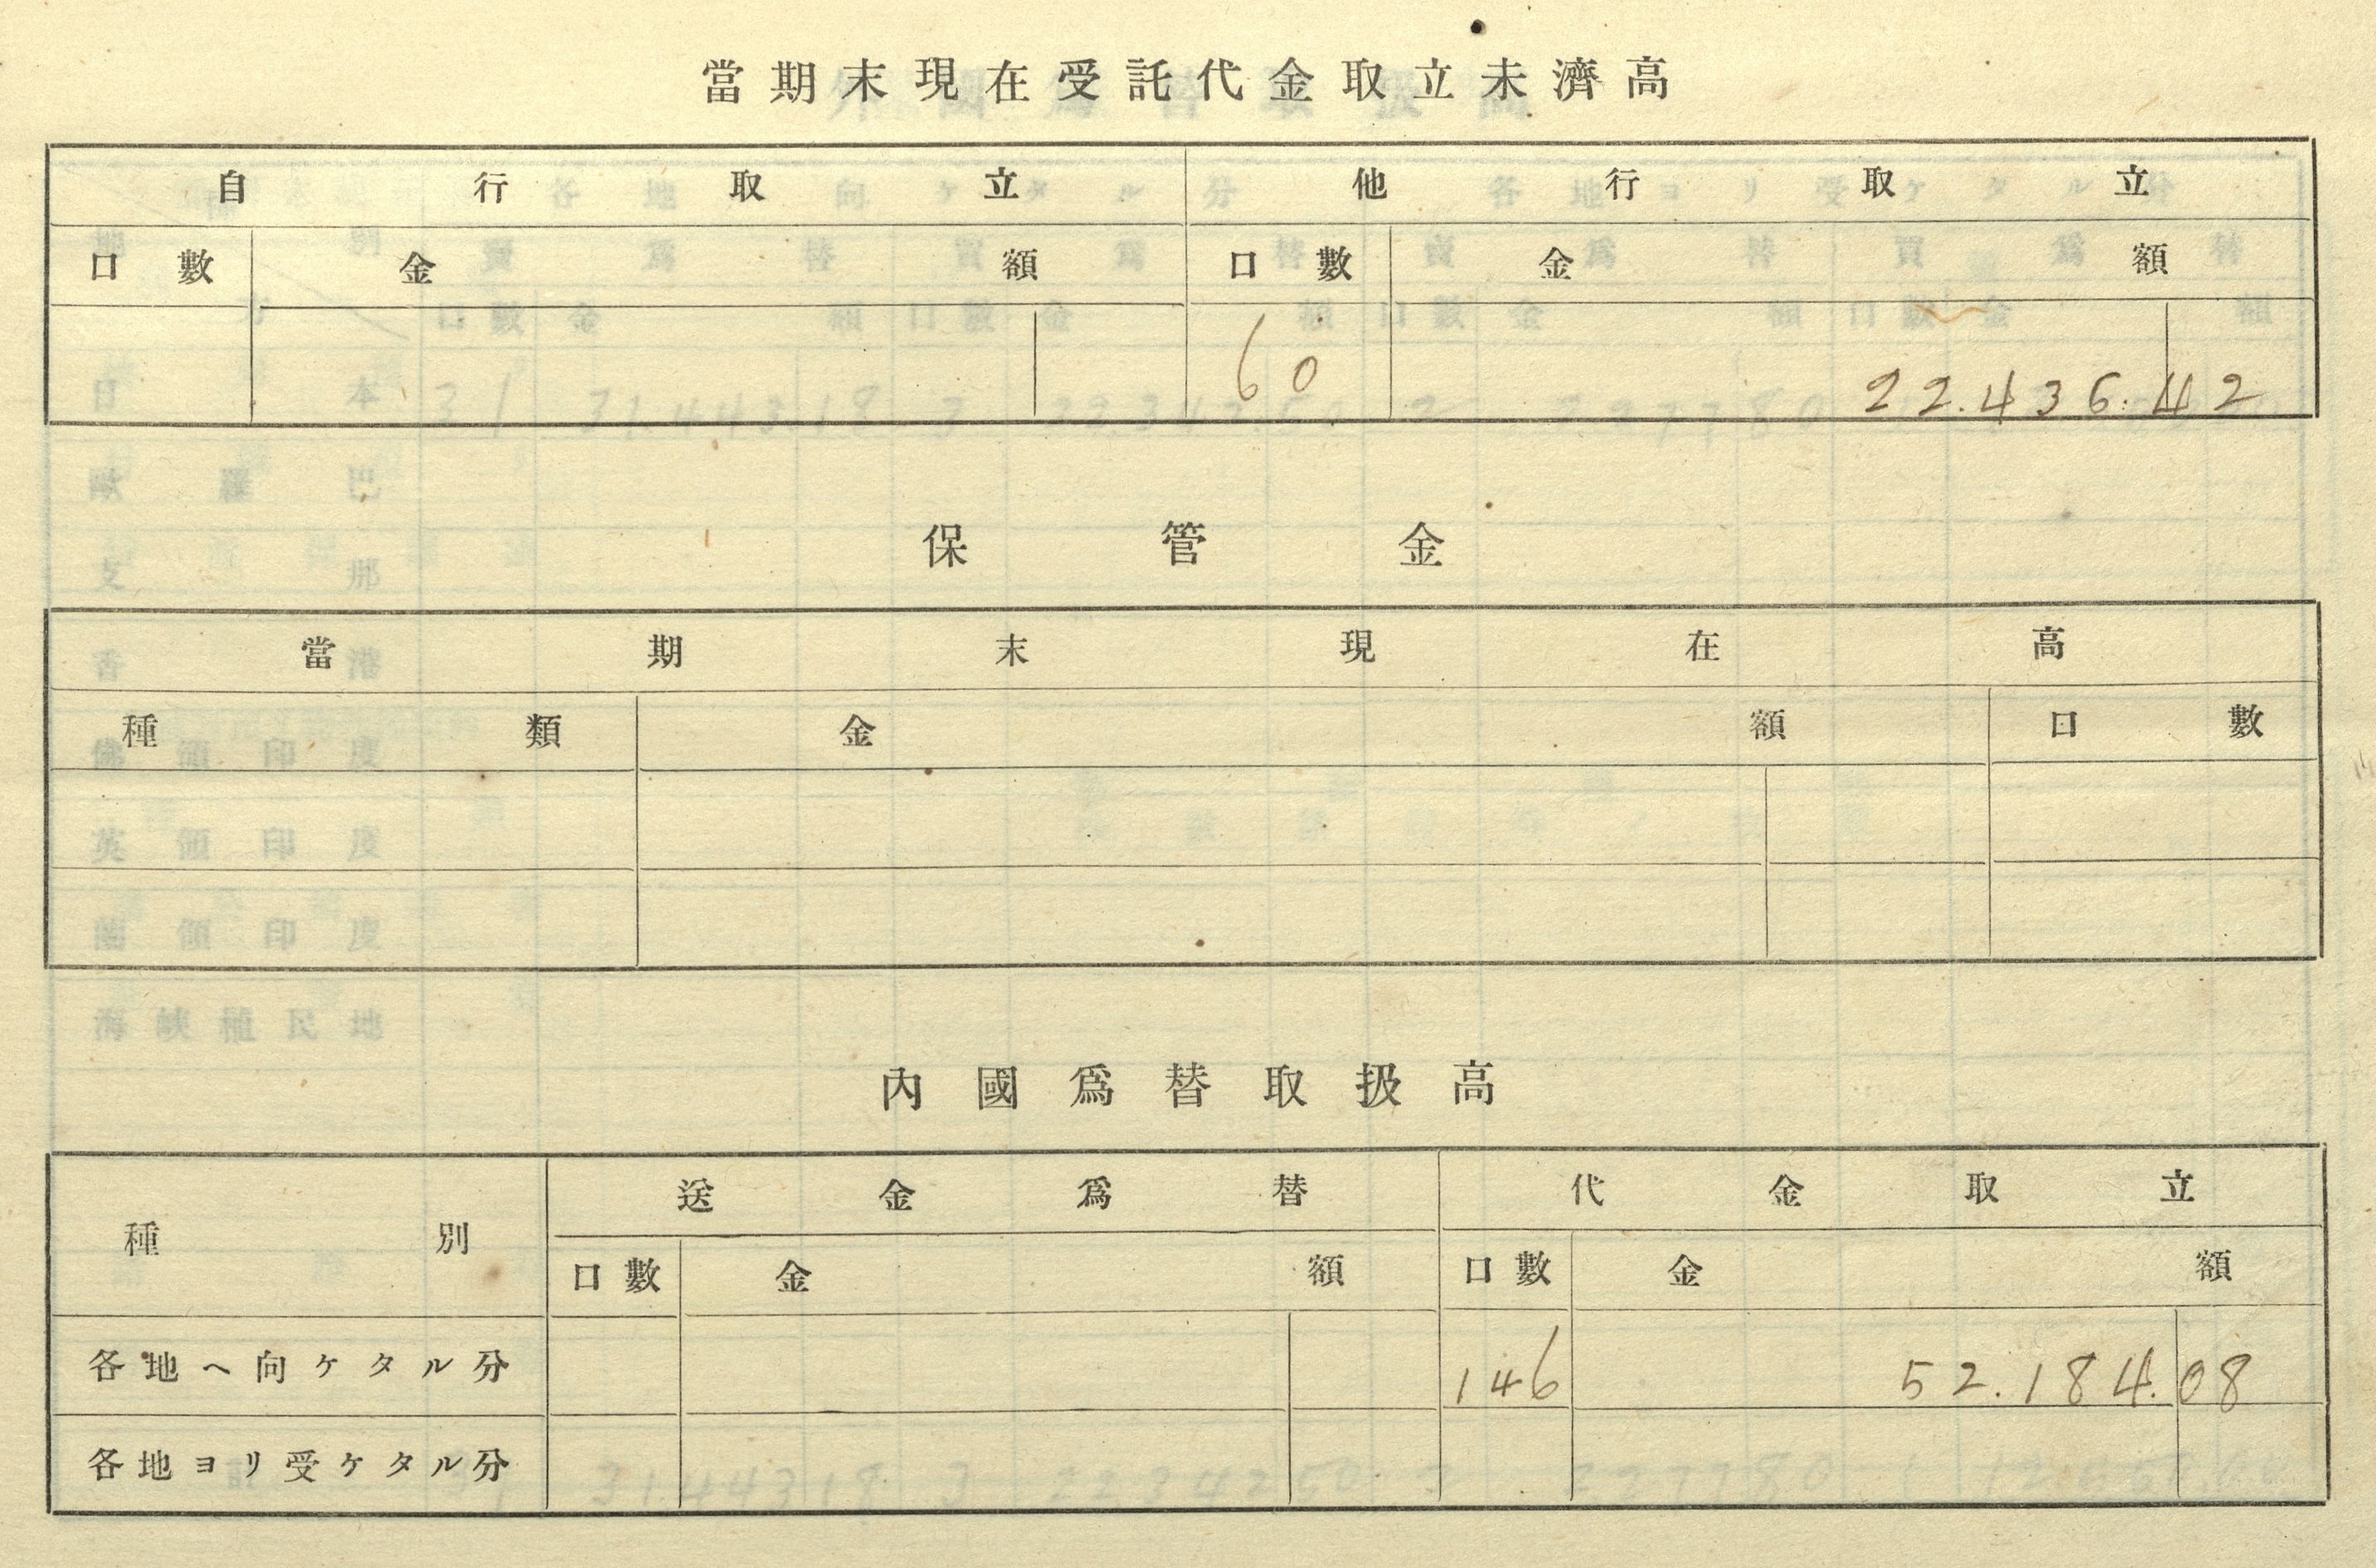 當期末現在受託代金取立未濟高
自行取立 他行取立
口數 金額 口數 金額
60 22.436.42
保管金
當期末現在高
種類 金額 口數
內國爲替取扱高
種別 送金爲替 代金取立
口數 金額 口數 金額
各地ヘ向ケタル分 146 52.184.08
各地ヨリ受ケタル分